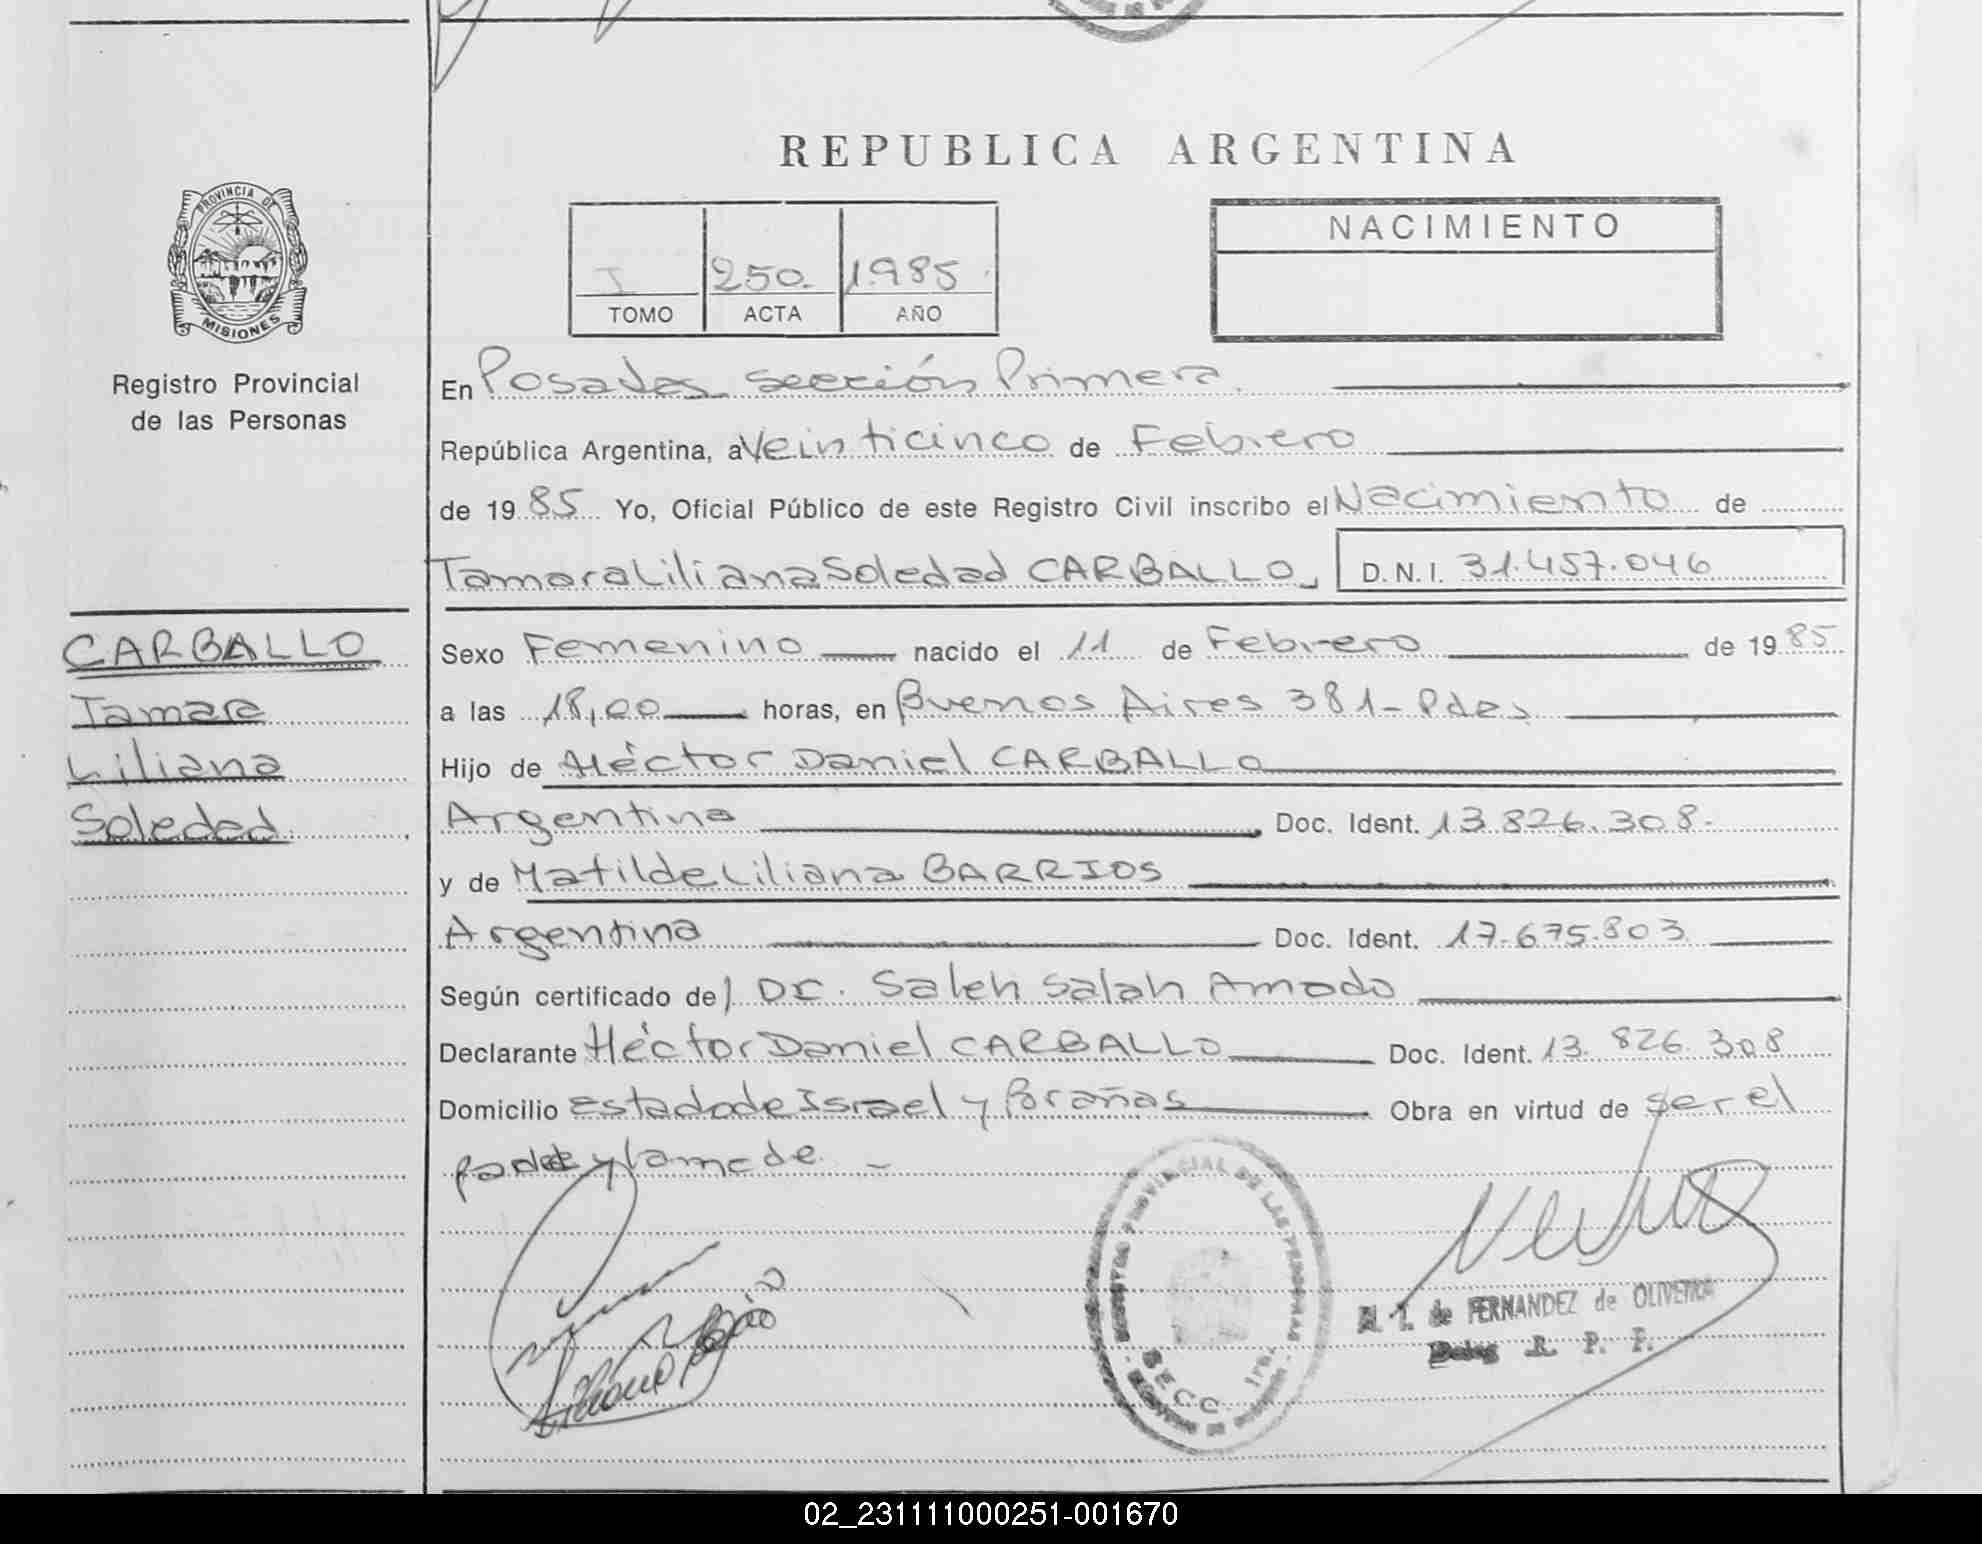 REPUBLICA ARGENTINA
PROVINCIA DE
MISIONES
Registro Provincial
de las Personas
I 250. 1.985
TOMO ACTA AÑO
NACIMIENTO
En Posadas sección Primera.
República Argentina, a Veinticinco de Febrero
de 1985 Yo, Oficial Público de este Registro Civil inscribo el Nacimiento de
Tamara Liliana Soledad CARBALLO D.N.I. 31.457.046
CARBALLO
Tamara
Liliana
Soledad
Sexo Femenino nacido el 11 de Febrero de 1985
a las 18,00 horas, en Buenos Aires 381- Pdas
Hijo de Héctor Daniel CARBALLO
Argentina Doc. Ident. 13.826.308.
y de Matilde Liliana BARRIOS
Argentina Doc. Ident. 17.675.803
Según certificado de Dr. Saleh Salah Amado
Declarante Héctor Daniel CARBALLO Doc. Ident. 13.826.308
Domicilio Estado de Israel y Borañas Obra en virtud de ser el
padre y la madre
PROVINCIAL DE LAS PERSONAS
SECC. 1ra.
M. T. de FERNANDEZ de OLIVEIRA
R. P. P.
02_231111000251-001670